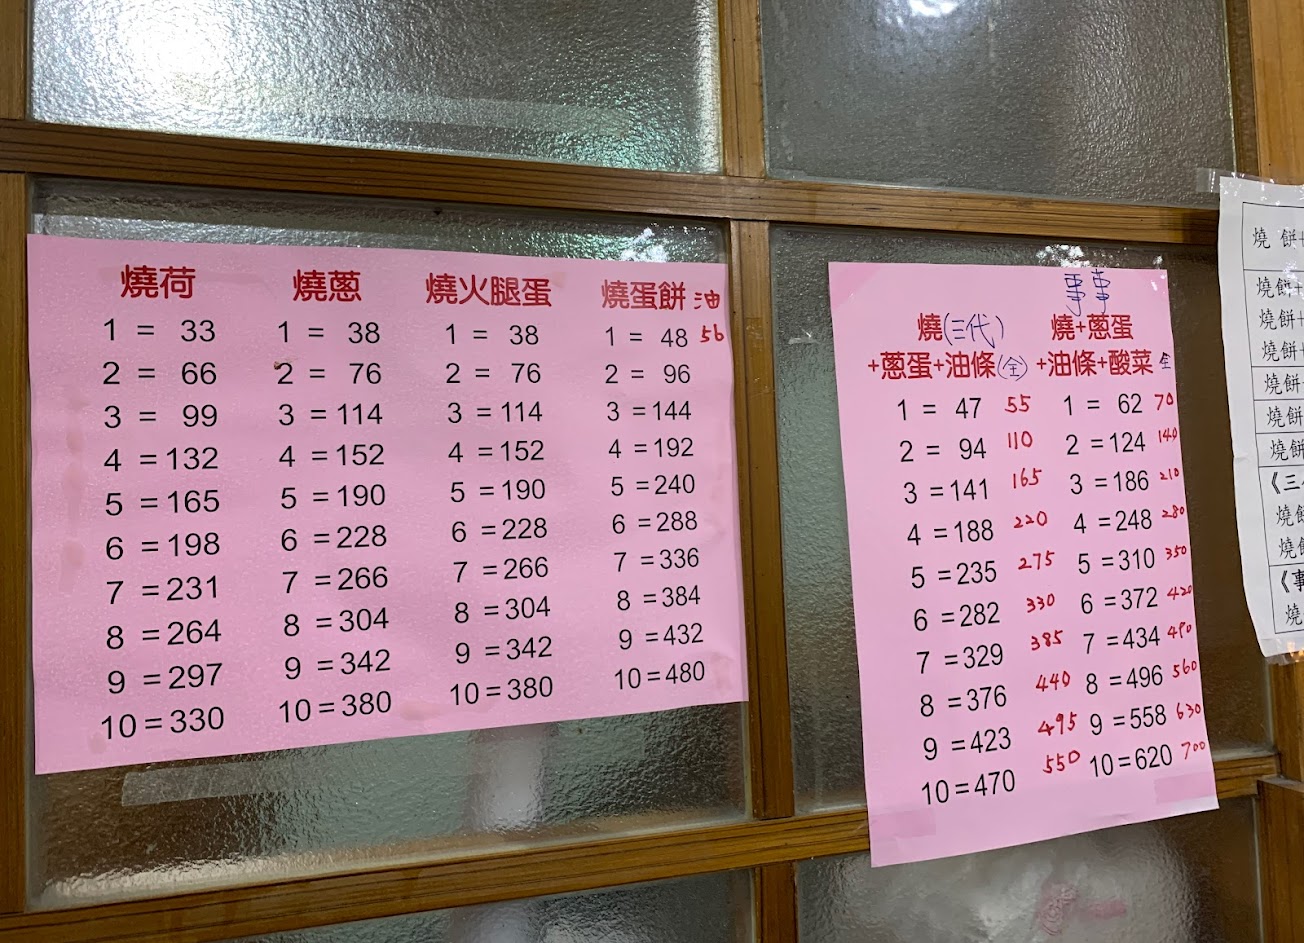 燒荷 燒蔥 燒火腿蛋 燒蛋餅 油
1 = 33 1 = 38 1 = 38 1 = 48 56
2 = 66 2 = 76 2 = 76 2 = 96
3 = 99 3 =114 3 =114 3 =144
4 =132 4 =152 4 =152 4 =192
5 =165 5 =190 5 =190 5 =240
6 =198 6 =228 6 =228 6 =288
7 =231 7 =266 7 =266 7 =336
8 =264 8 =304 8 =304 8 =384
9 =297 9 =342 9 =342 9 =432
10=330 10=380 10=380 10=480
事事
燒(三代) 燒+蔥蛋
+蔥蛋+油條(全) +油條+酸菜 全
1 = 47 55 1 = 62 70
2 = 94 110 2 =124 140
3 =141 165 3 =186 210
4 =188 220 4 =248 280
5 =235 275 5 =310 350
6 =282 330 6 =372 420
7 =329 385 7 =434 490
8 =376 440 8 =496 560
9 =423 495 9 =558 630
10=470 550 10=620 700
燒 餅+
燒餅+
燒餅+
燒餅+
燒餅
燒餅
燒餅
《三
燒餅
燒
《事
燒